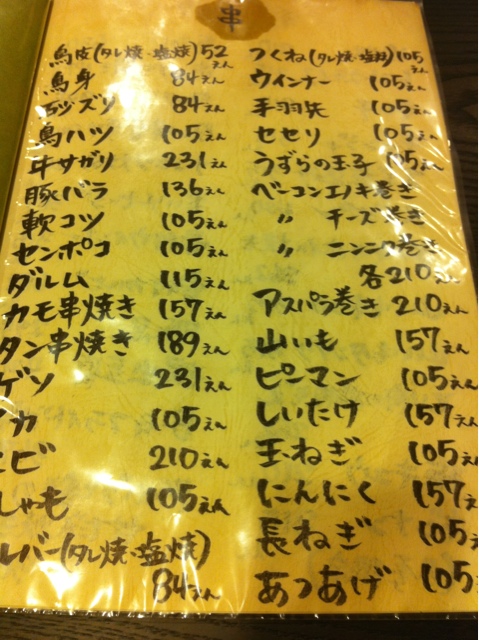 串
鳥皮(タレ焼・塩焼)52えん
鳥身 84えん
ズリ 84えん
鳥ハツ 105えん
牛サガリ 231えん
豚バラ 136えん
軟コツ 105えん
センポコ 105えん
ダルム 115えん
カモ串焼き 157えん
タン串焼き 189えん
ゲソ 231えん
カ 105えん
ビ 210えん
しゃも 105えん
レバー(タレ焼・塩焼)
84えん
つくね(タレ焼・塩焼)105えん
ウインナー 105えん
手羽先 105えん
セセリ 105えん
うずらの玉子 105えん
ベーコンエノキ巻き
〃 チーズ巻き
〃 ニンニク巻き
各210えん
アスパラ巻き 210えん
山いも 157えん
ピーマン 105えん
しいたけ 157えん
玉ねぎ 105えん
にんにく 157えん
長ねぎ 105えん
あつあげ 105